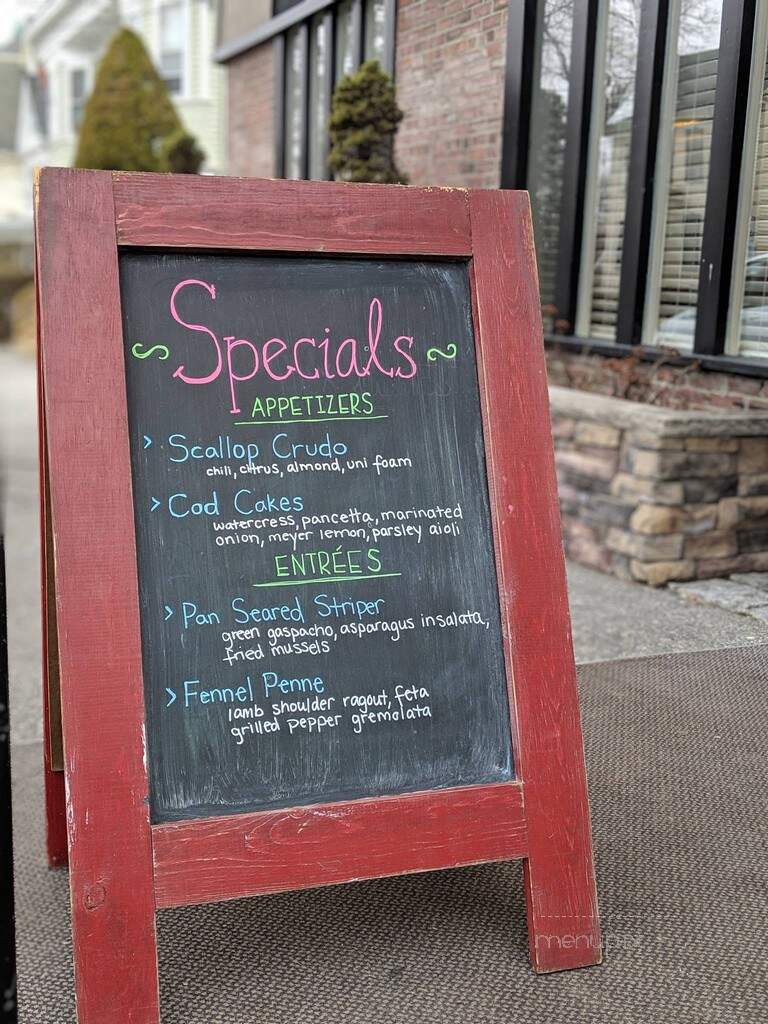 Specials
APPETIZERS
> Scallop Crudo
chili, citrus, almond, uni foam
> Cod Cakes
watercress, pancetta, marinated
onion, meyer lemon, parsley aioli
ENTRÉES
> Pan Seared Striper
green gaspacho, asparagus insalata,
fried mussels
> Fennel Penne
lamb shoulder ragout, feta
grilled pepper gremolata
menupix